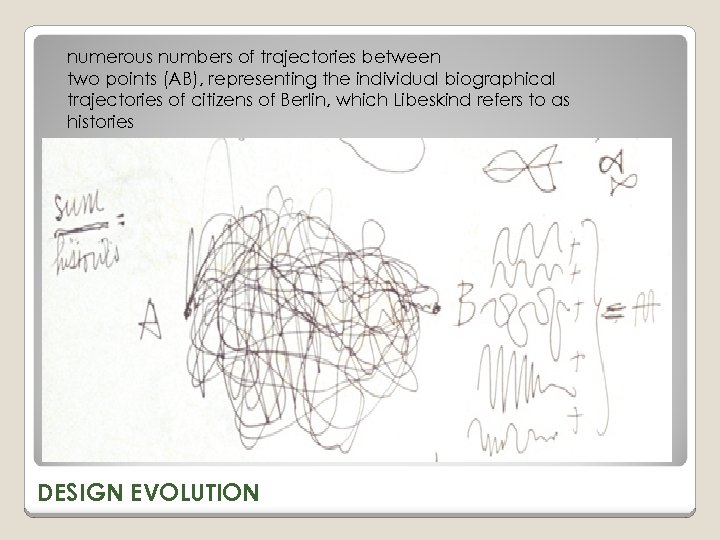 numerous numbers of trajectories between
two points (AB), representing the individual biographical
trajectories of citizens of Berlin, which Libeskind refers to as
histories
sum =
histories
A
B
+
+
+
+
+
=
DESIGN EVOLUTION